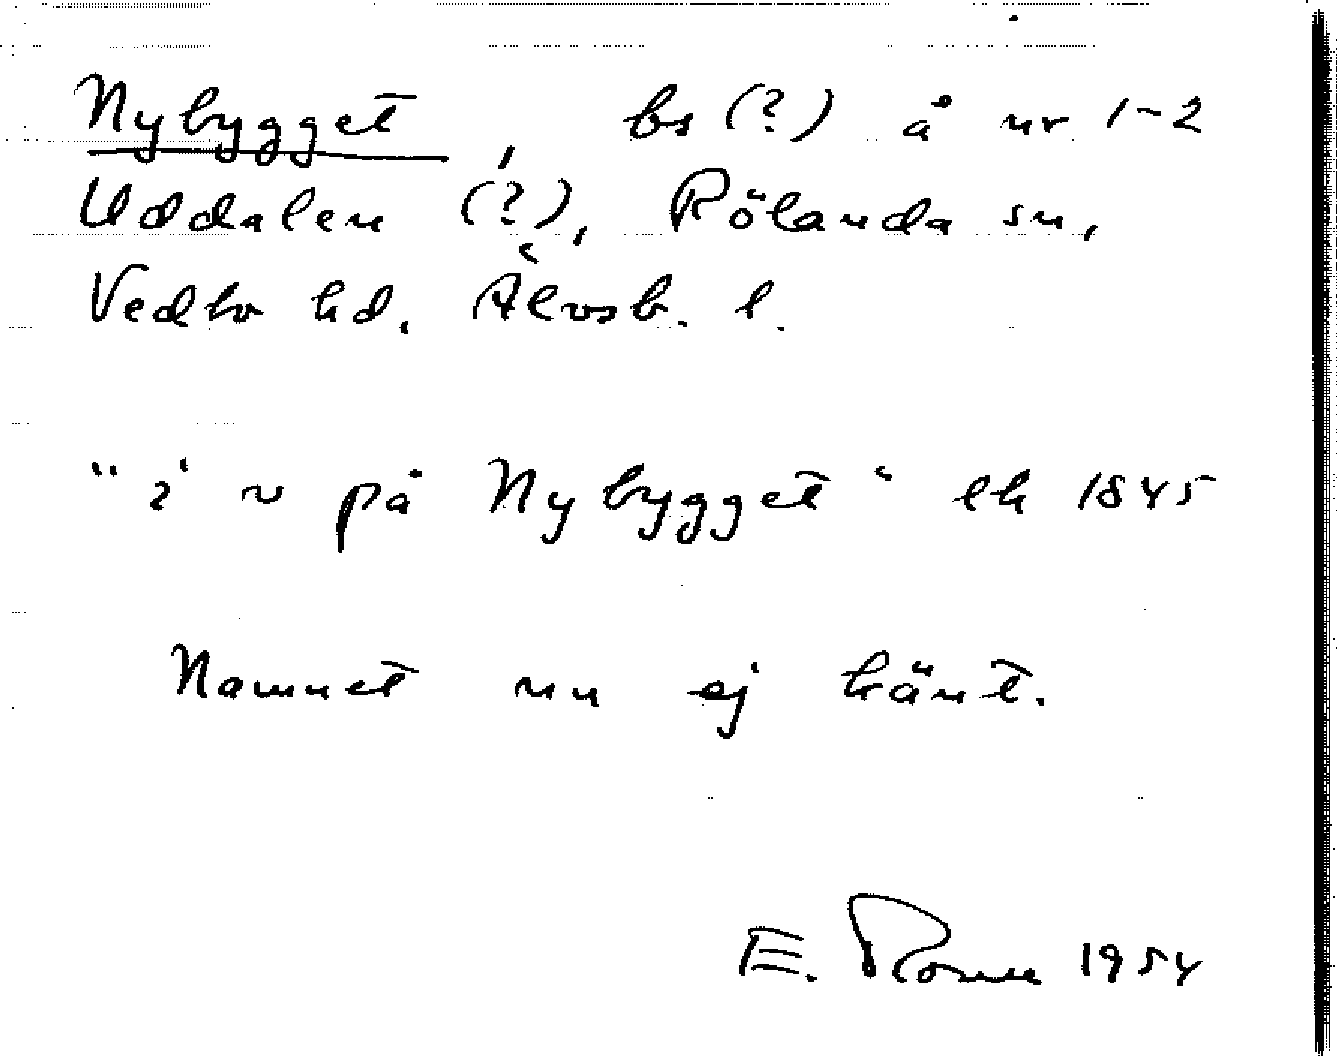 Nybygget, bs (?) å nr 1-2
Uddalen (?), Rölanda sn,
Vedbo hd. Älvsb. l.
"i v på Nybygget" lh 1845
Namnet nu ej känt.
E. 1954